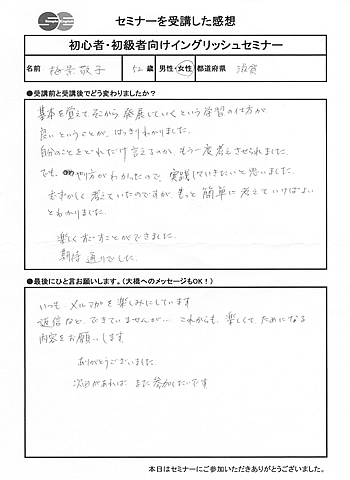 セミナーを受講した感想
初心者・初級者向けイングリッシュセミナー
名前 敬子 52 歳 男性・女性 都道府県 滋賀
●受講前と受講後でどう変わりましたか？
基本を覚えてそこから発展していくという学習の仕方が、
良いということが、はっきりわかりました。
自分のことをどれだけ言えるのか、もう一度考えさせられました。
でも、やり方がわかったので、実践していきたいと思いました。
むずかしく考えていたのですが、もっと簡単に考えていけばよい
とわかりました。
楽しくすごすことができました。
期待通りでした。
●最後にひと言お願いします。（大橋へのメッセージもOK！）
いつも メルマガを楽しみにしています
返信など、できていませんが… これからも、楽しくてためになる
内容をお願いします
ありがとうございました。
次回があれば、また参加したいです
本日はセミナーにご参加いただきありがとうございました。